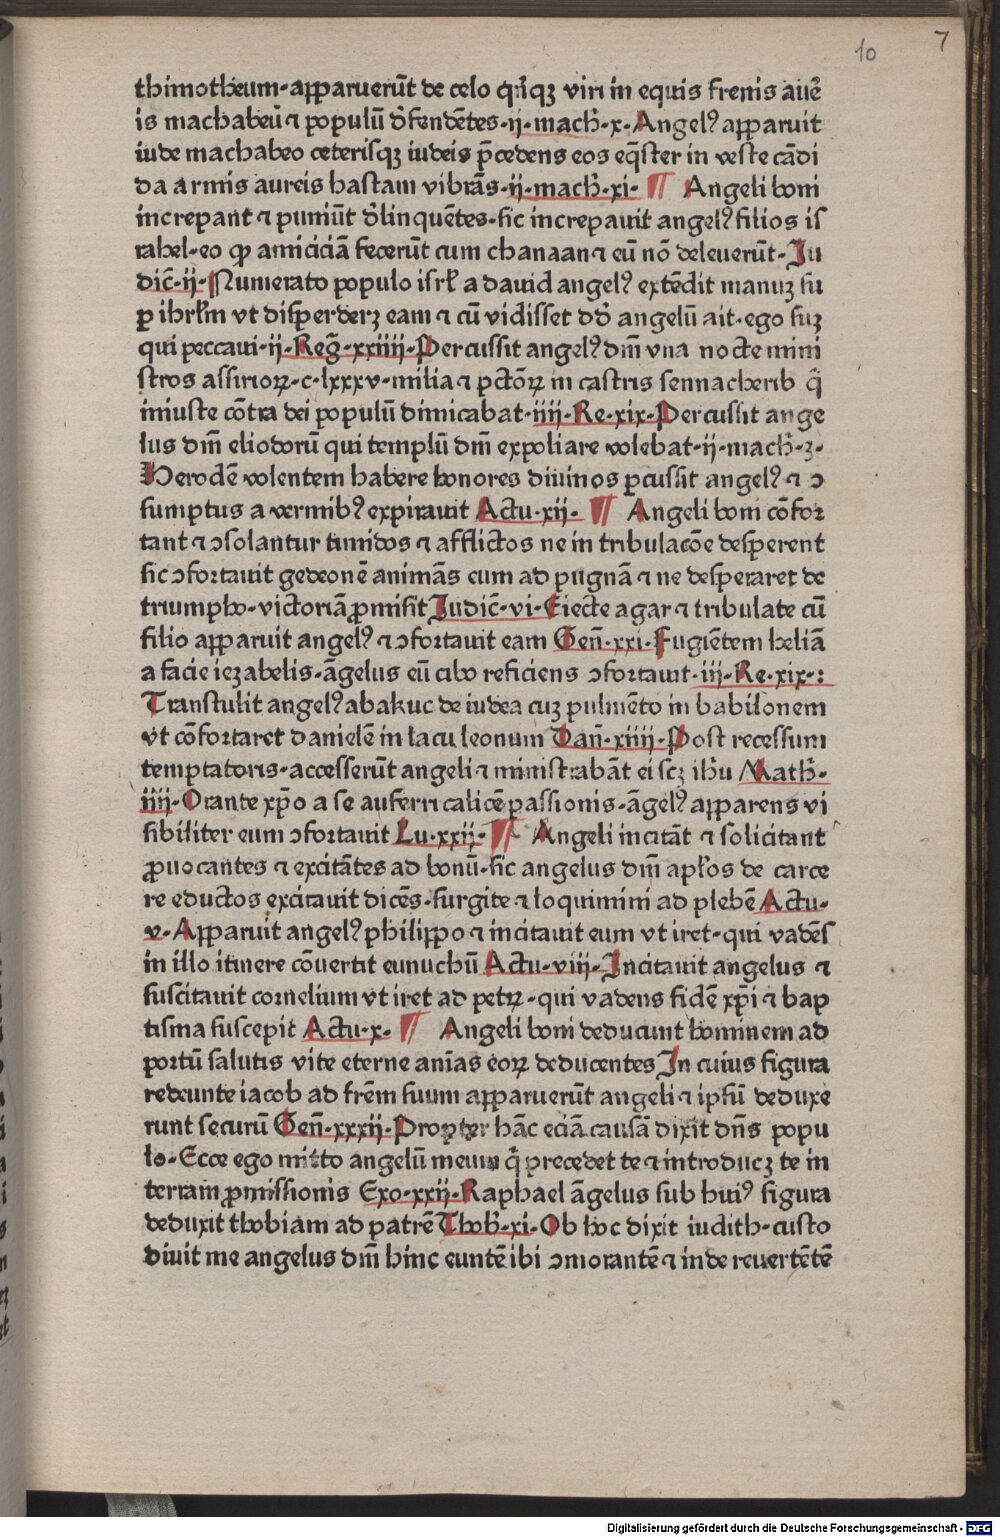 10 7
thimotheum·apparuerūt de celo qͥnqꝫ viri in equis frenis aureͥ
is machabeū ⁊ populū d̓fendētes·ij·mach̓·x·Angelꝰ apparuit
iude machabeo ceterisqꝫ iudeis p̄cedens eos eq̄ster in veste cādi
da armis aureis hastam vibrās·ij·mach̓·xi· ¶ Angeli boni
increpant ⁊ puniūt d̓linquētes·sic increpauit angelꝰ filios is
rahel·eo ꝙ amiciciā fecerūt cum chanaan ⁊ eū nō deleuerūt·Iu
dic̄·ij·Numerato populo isrl̓ a dauid angelꝰ extēdit manuꝫ su
ꝑ ihrl̓m vt disperderꝫ eam ⁊ cū vidisset dd̓ angelū ait·ego suꝫ
qui peccaui·ij·Reg̃·xxiiij·Percussit angelꝰ dn̄i vna nocte mini
stros assirioꝝ·c·lxxxv·milia ⁊ pctōꝝ in castris sennacherib q̄
iniuste cōtra dei populū dimicabat·iiij·Re·xix·Percussit ange
lus dn̄i eliodorū qui templū dn̄i expoliare volebat·ij·mach̓·3·
Herodē volentem habere honores diuinos ꝑcussit angelꝰ ⁊ ↄ
sumptus a vermibꝰ expirauit Actu·xij· ¶ Angeli boni cōfor
tant ⁊ ↄsolantur timidos ⁊ afflictos ne in tribulacōe desperent
sic ↄfortauit gedeonē animās cum ad pugnā ⁊ ne desperaret de
triumpho·victoriā ꝓmisit Iudic̄·vi·Eiecte agar ⁊ tribulate cū
filio apparuit angelꝰ ⁊ ↄfortauit eam Gen̄·xxi·Fugiētem heliā
a facie iezabelis·āgelus eū cibo reficiens ↄfortauit·iij·Re·xix·:
Transtulit angelꝰ abakuc de iudea cuꝫ pulmēto in babilonem
vt cōfortaret danielē in lacu leonum Dan̄·xiiij·Post recessum
temptatoris·accesserūt angeli ⁊ ministrabāt ei scꝫ ih̓u Math̓·
iiij·Orante xp̄o a se auferri calicē passionis·āgelꝰ apparens vi
sibiliter eum ↄfortauit Lu·xxij· ¶ Angeli incitāt ⁊ solicitant
ꝓuocantes ⁊ excitātes ad bonū·sic angelus dn̄i apl̓os de carce
re eductos excitauit dicēs·surgite ⁊ loquimini ad plebē Actu·
v·Apparuit angelꝰ philippo ⁊ incitauit eum vt iret·qui vadēs
in illo itinere cōuertit eunuchū Actu·viij·Incitauit angelus ⁊
suscitauit cornelium vt iret ad petꝝ·qui vadens fidē xp̄i ⁊ bap
tisma suscepit Actu·x· ¶ Angeli boni deducunt hominem ad
portū salutis vite eterne anīas eoꝝ deducentes In cuius figura
redeunte iacob ad frēm suum apparuerūt angeli ⁊ ipsū deduxe
runt securū Gen̄·xxxij·Propter hāc eciā causā dixit dn̄s popu
lo·Ecce ego mitto angelū meum q̄ precedet te ⁊ introducꝫ te in
terram ꝓmissionis Exo·xxij·Raphael āgelus sub huiꝰ figura
deduxit thobiam ad patrē Thob̓·xi·Ob hoc dixit iudith·custo
diuit me angelus dn̄i hinc euntē ibi ↄmorantē ⁊ inde reuertētē
Digitalisierung gefördert durch die Deutsche Forschungsgemeinschaft - DFG